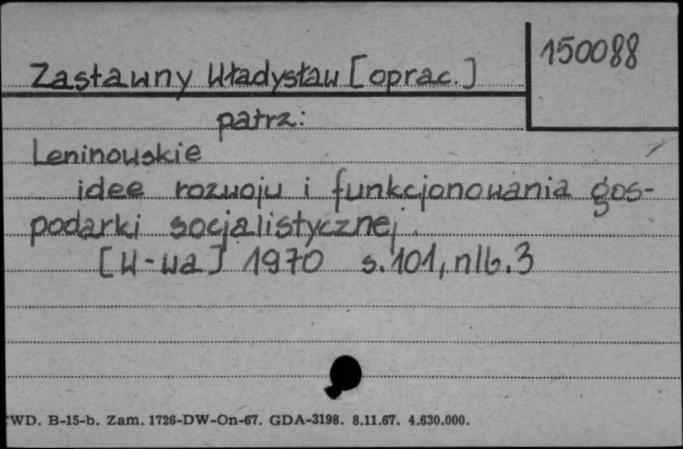 150088
Zastawny Władysław [oprac.]
patrz:
Leninowskie
idee rozwoju i funkcjonowania gos-
podarki socjalistycznej.
[W-wa] 1970 s.101, nlb.3
WD. B-15-b. Zam. 1726-DW-On-67. GDA-3198. 8.11.67. 4.630.000.